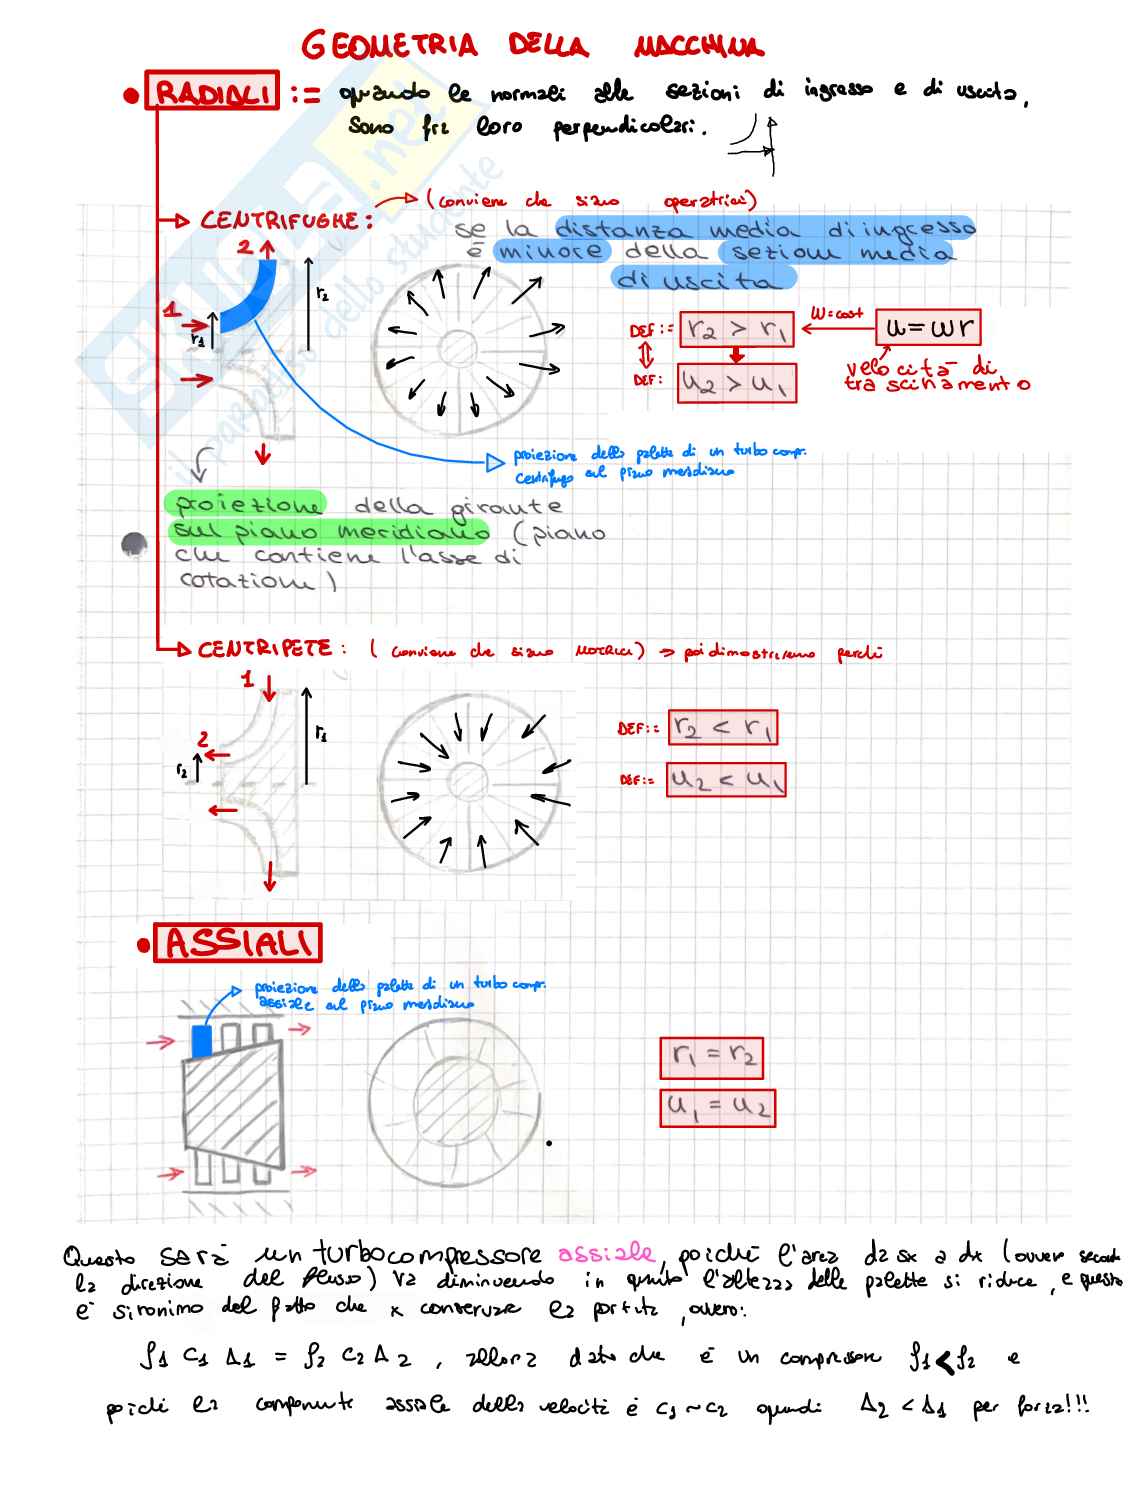 GEOMETRIA DELLA MACCHINA
• RADIALI := quando le normali alle sezioni di ingresso e di uscita,
sono fra loro perpendicolari.
CENTRIFUGHE: (conviene che siano operatrici)
se la distanza media di ingresso
è minore della sezione media
di uscita
2
1
r1
r2
DEF:= r2 > r1
W=cost
u=wr
DEF: u2 > u1
velocità di
trascinamento
proiezione della paletta di un turbo compr.
centrifugo sul piano meridiano
proiezione della girante
sul piano meridiano (piano
che contiene l'asse di
rotazione)
CENTRIPETE: (conviene che siano MOTRICI) → poi dimostriamo perché
1
2
r2
r1
DEF:= r2 < r1
DEF:= u2 < u1
• ASSIALI
proiezione della paletta di un turbo compr.
assiale sul piano meridiano
r1 = r2
u1 = u2
Questo sarà un turbocompressore assiale, poiché l'area da sx a dx (ovvero secondo
la direzione del flusso) va diminuendo in quanto l'altezza delle palette si riduce, e questo
è sinonimo del fatto che x conservare la portata, ovvero:
ρ1 c1 A1 = ρ2 c2 A2, allora dato che è un compressore ρ1<ρ2 e
poiché la componente assiale della velocità è c1~c2 quindi A2 < A1 per forza!!!
SKUOLA.net
il paradiso dello studente